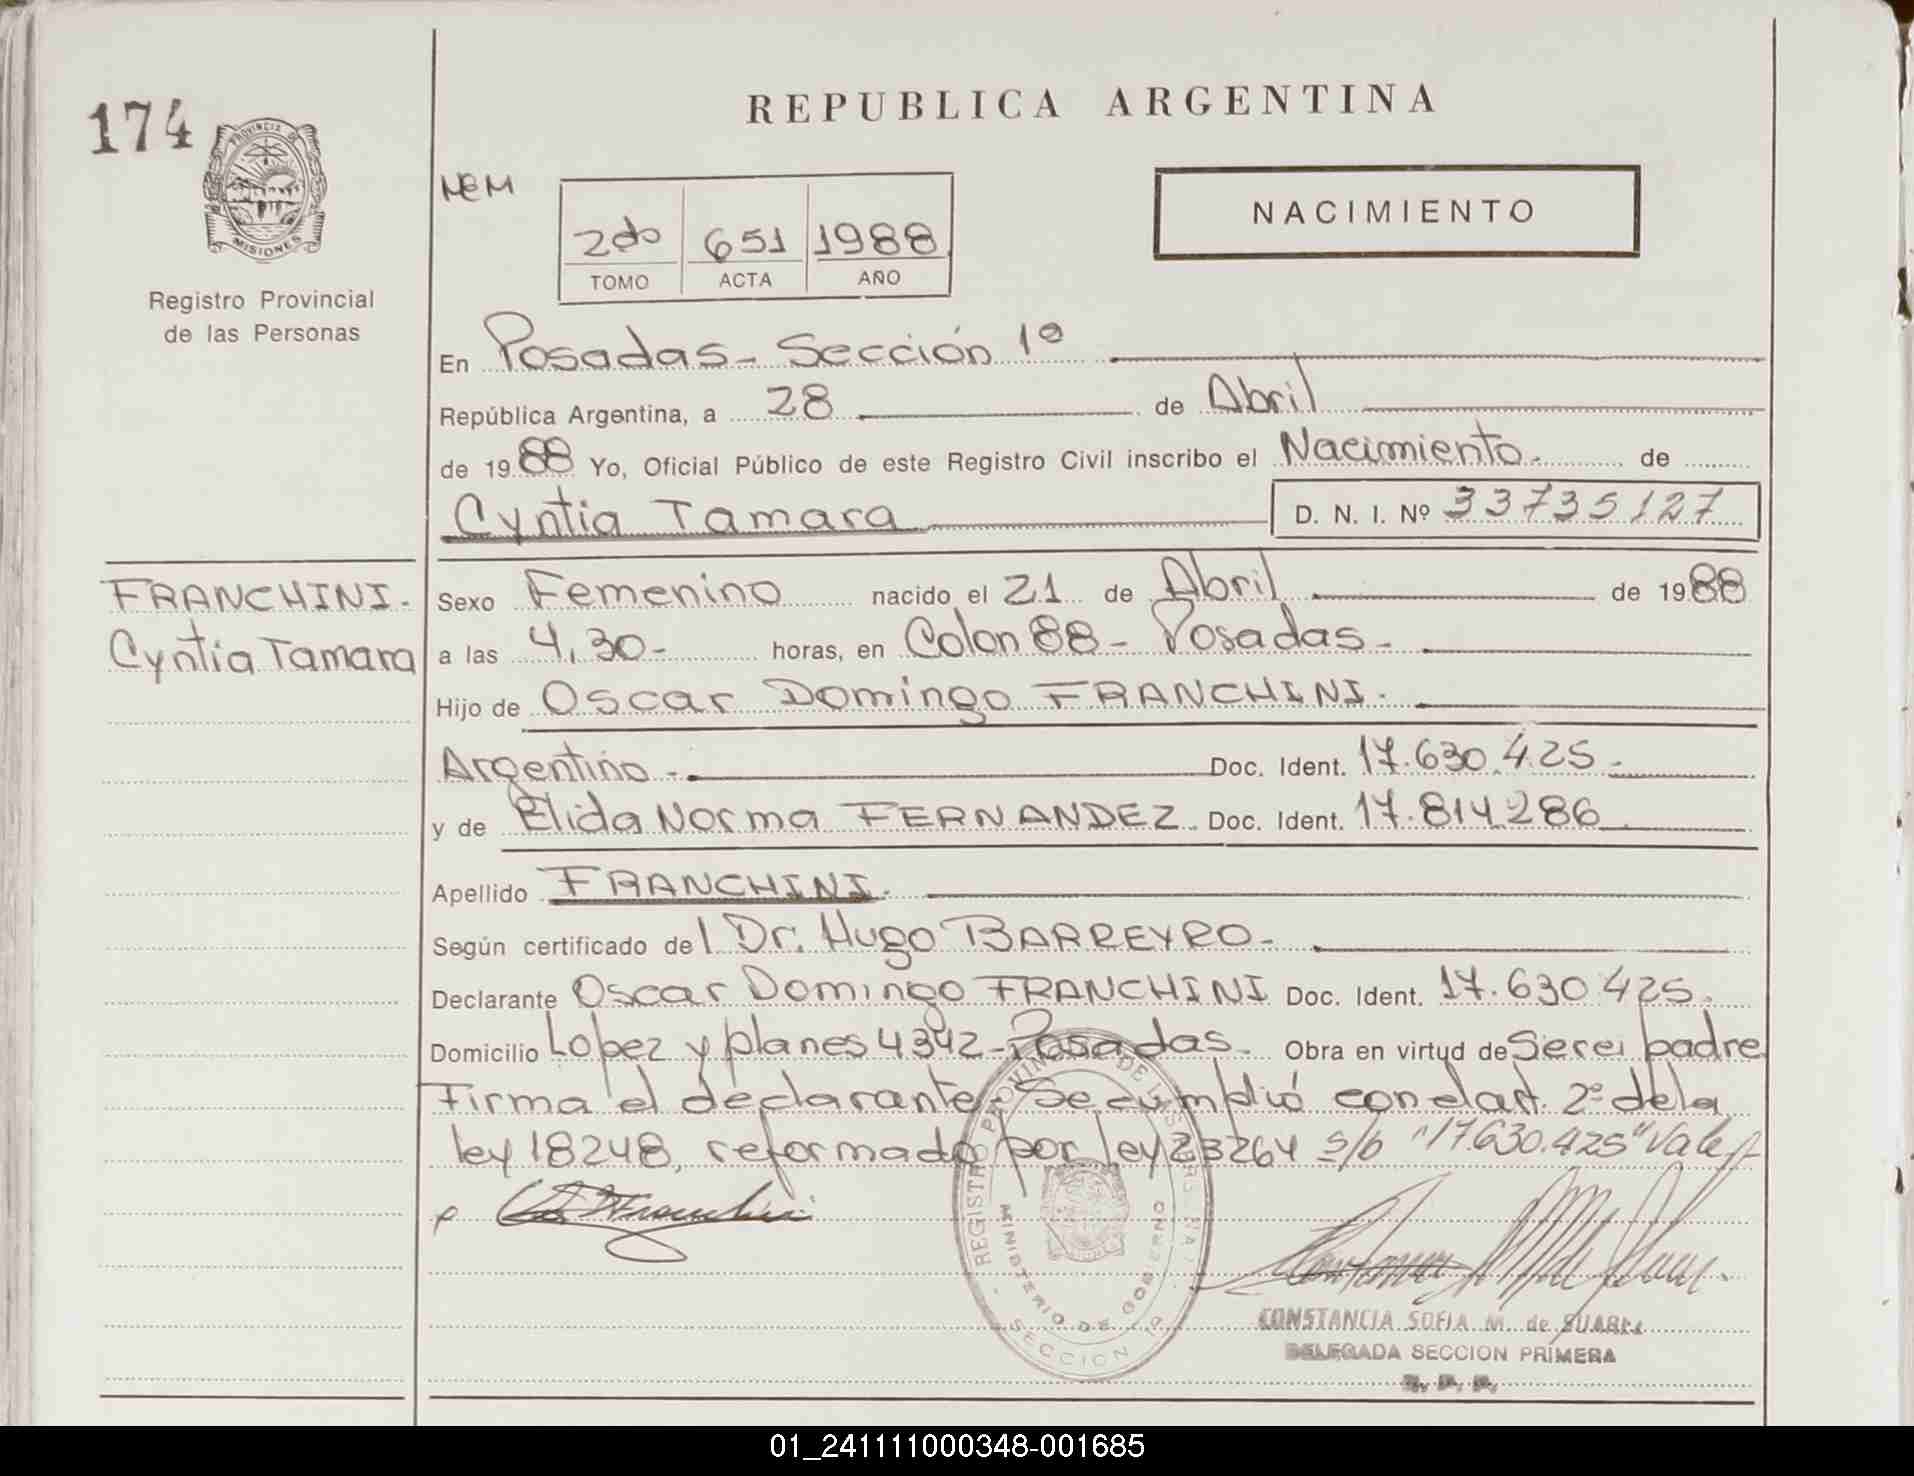 174
PROVINCIA DE
MISIONES
Registro Provincial
de las Personas
REPUBLICA ARGENTINA
NACIMIENTO
2do 651 1988
TOMO ACTA AÑO
En Posadas - Sección 1º
República Argentina, a 28 de Abril
de 1988 Yo, Oficial Público de este Registro Civil inscribo el Nacimiento. de
Cyntia Tamara D. N. I. Nº 33735127
FRANCHINI.
Cyntia Tamara
Sexo Femenino nacido el 21 de Abril de 1988
a las 4,30- horas, en Colon 88 - Posadas -
Hijo de Oscar Domingo FRANCHINI.
Argentino - Doc. Ident. 17.630.425 -
y de Elida Norma FERNANDEZ. Doc. Ident. 17.814.286
Apellido FRANCHINI.
Según certificado del Dr. Hugo BARREYRO-
Declarante Oscar Domingo FRANCHINI Doc. Ident. 17.630.425.
Domicilio Lopez y planes 4342 - Posadas. Obra en virtud de Ser el padre
Firma el declarante. Se cumplió con el art. 2º de la
ley 18248, reformado por ley 23264 s/b "17.630.425" Vale
REGISTRO PROVINCIAL DE LAS PERSONAS
MINISTERIO DE GOBIERNO
SECCION 1ª
CONSTANCIA SOFIA M. de SUAREZ
DELEGADA SECCION PRIMERA
R. P. P.
01_241111000348-001685